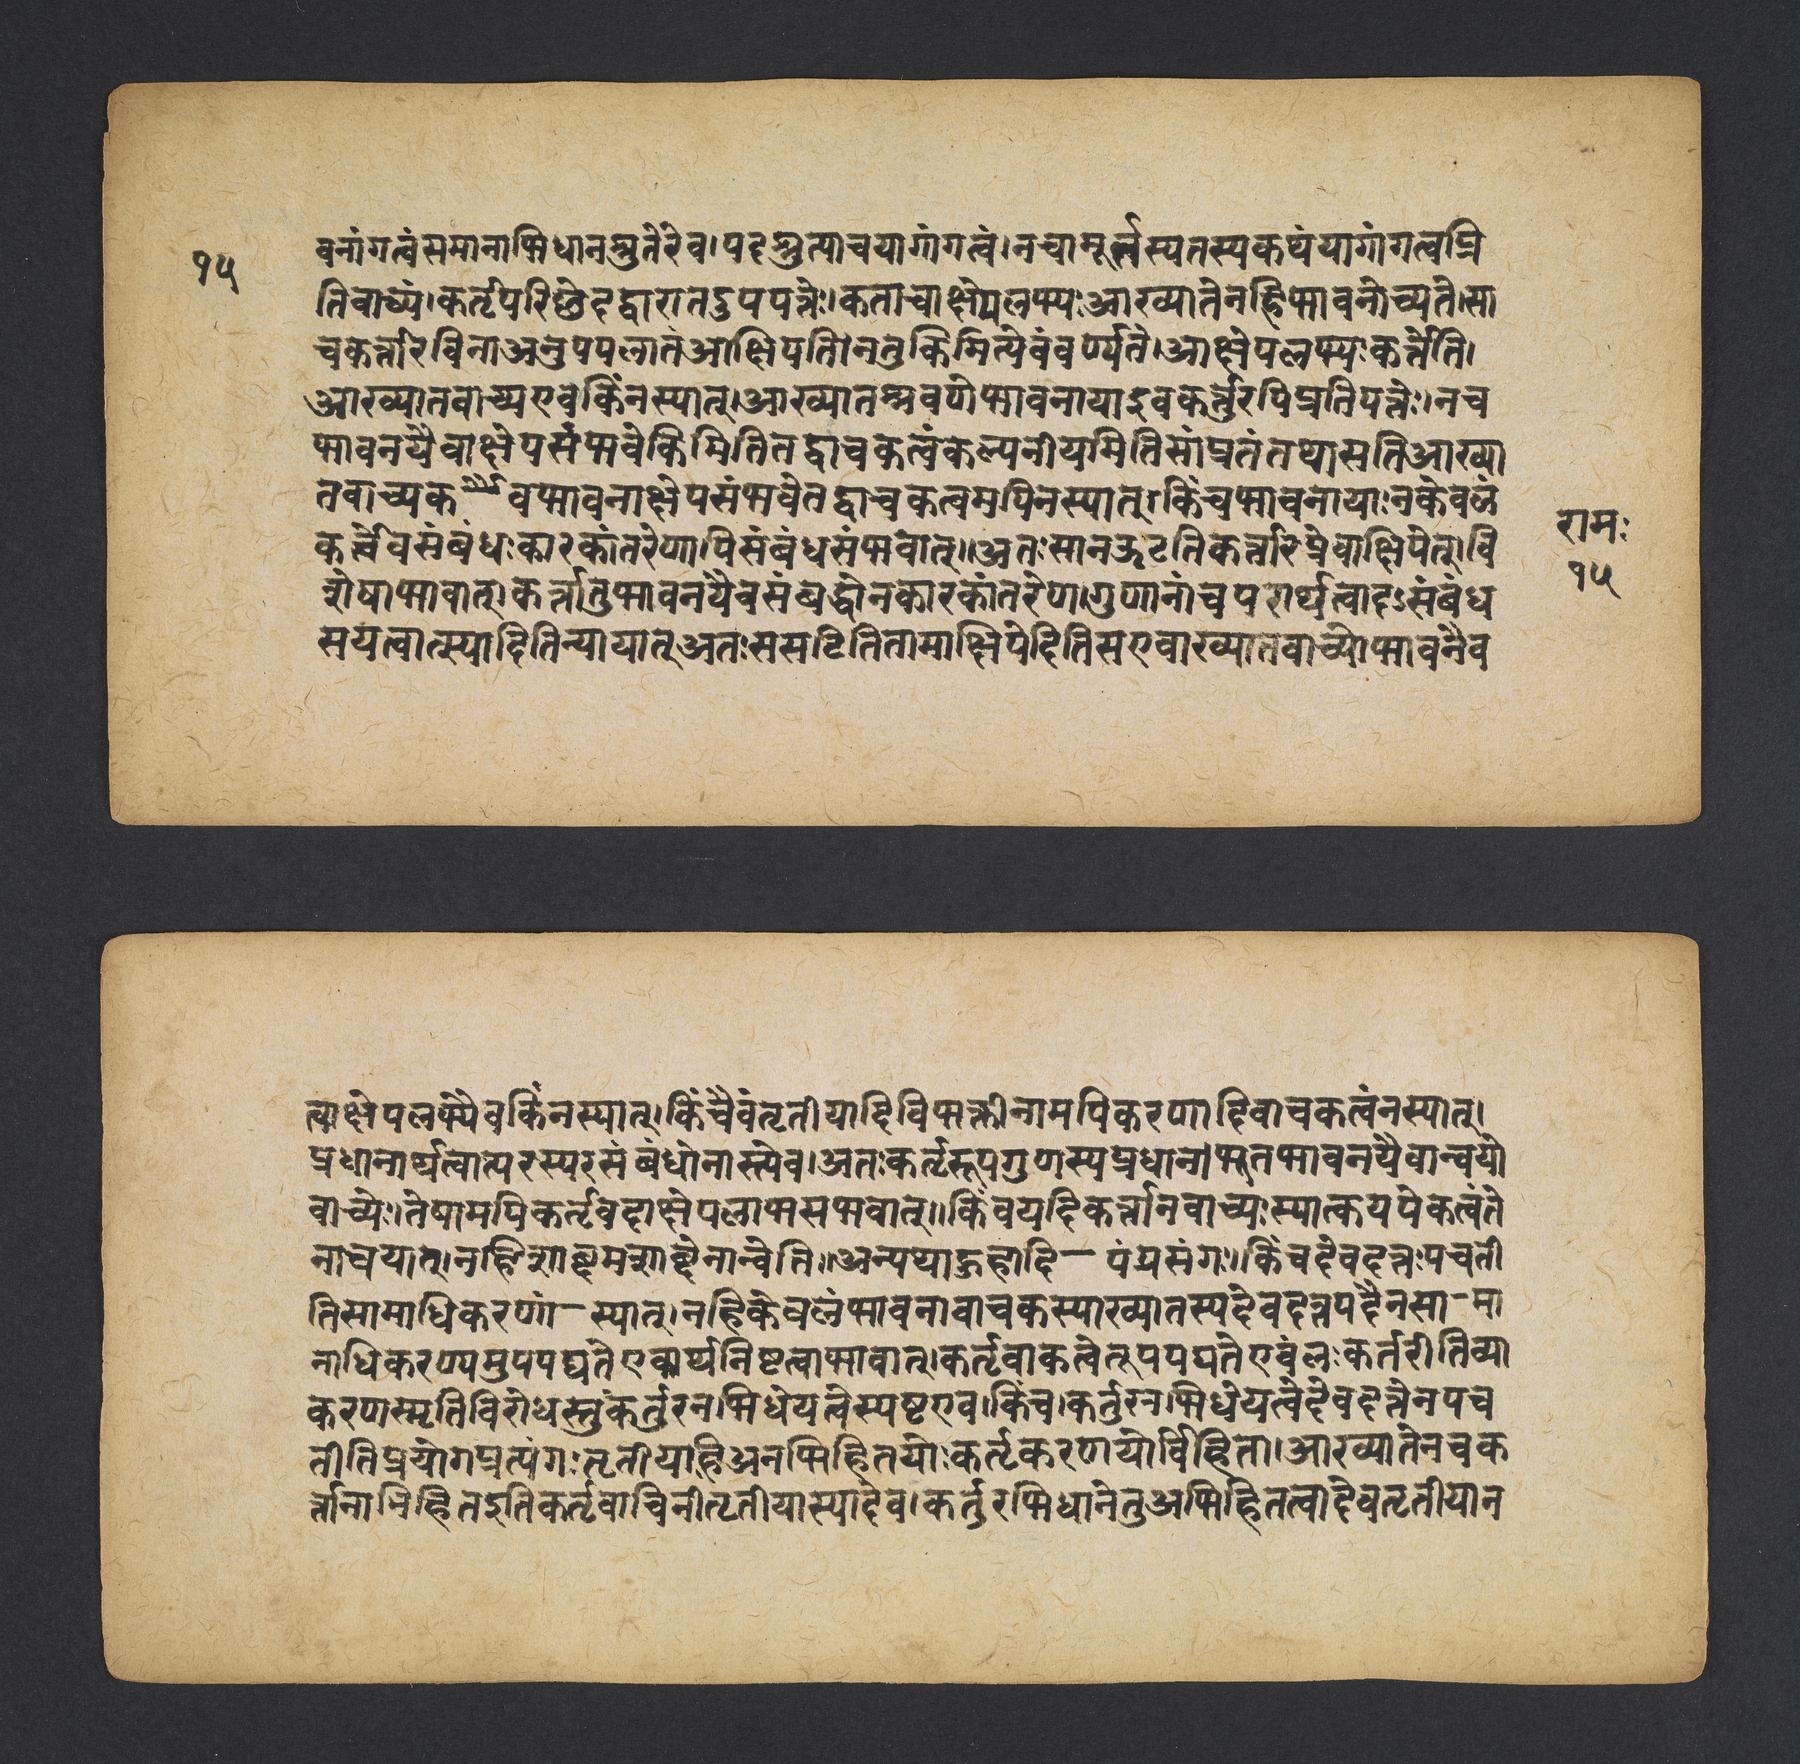 १५
वनांगत्वंसमानाभिधानस्रुतेरेव।पदस्रुत्याचयागांगत्वं।नचामूर्त्तस्यतस्यकथंयागांगत्वप्रि
तिवाच्यं।कर्तृपरिछेदद्वारातदुपपत्तेः।कताचाक्षेपलभ्यःआख्यातेनहिभावनोच्यते।सा
चकर्त्तारंविनाअनुपपन्नातंआक्षिपति।ननुकिमित्येवंवर्ण्यते।आक्षेपलभ्यःकर्त्तेति।
आख्यातवाच्यएवकिंनस्यात्।आख्यातश्रवणेभावनायाइवकर्त्तुरपिप्रतिपत्तेः।नच
भावनयैवाक्षेपसंभवेकिमितितद्वाचकत्वंकल्पनीयमितिसांप्रतंतथासतिआख्या
तवाच्यक वभावनाक्षेपसंभवेतद्वाचकत्वमपिनस्यात्।किंचभावनायाःनकेवळं
कर्त्रैवसंबंधःकारकांतरेणापिसंबंधसंभवात्॥अतःसानझटतिकर्त्तारमेवाक्षिपेत्।वि
शेषाभावात्।कर्त्तातुभावनयैवसंबद्धोनकारकांतरेण।गुणानांचपरार्थत्वादऽसंबंध
सयत्वात्स्यादितिन्यायात्अतःससटितितामाक्षिपेदितिसएवाख्यातवाच्योभावनैव
रामः
१५
त्वाक्षेपलभ्यैवकिंनस्यात्।किंचैवंतृतीयादिविभक्तीनामपिकरणादिवाचकत्वंनस्यात्।
प्रधानार्थत्वात्परस्परसंबंधोनास्त्येव।अतःकर्तृरूपगुणस्यप्रधानभूतभावनयैवान्वयो
वाच्यः।तेषामपिकर्तृवदाक्षेपलाभसभवात्॥किंवयदिकर्त्तानवाच्यःस्यात्कथमेकत्वंते
नान्वयात्।नहिशाब्दमशाब्देनान्वेति॥अन्यथाऊहादि— पंप्रसंगः।किंचदेवदत्तःपचती
तिसामाधिकरणां—स्यात्।नहिकेवलंभावनावाचकस्याख्यातस्यदेवदत्तपदेनसा-मा
नाधिकरण्यमुपपद्यतेएकार्थनिष्टत्वाभावात्।कर्तृवाकत्वेतूपपद्यतेएवंलःकर्तरीतिव्या
करणस्मृतिविरोधस्तुकर्तुरनभिधेयत्वेस्पष्टएव।किंच।कर्तुरनभिधेयत्वेदेवदत्तेनपच
तीतिप्रयोगप्रत्पंगःतृतीयाहिअनभिहितयोःकर्तृकरणयोर्विहिता।आख्यातेनचक
र्त्तानाभिहितइतिकर्तृवाचिनीतृतीयास्यादेव।कर्तुरभिधानेतुअभिहितत्वादेवतृतीयान